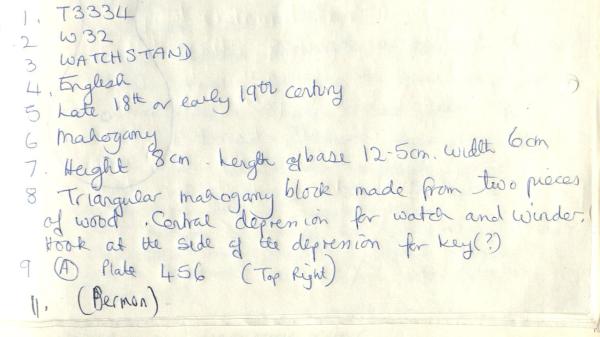 1. T3334
2 W32
3 WATCHSTAND
4. English
5 Late 18th or early 19th century
6 Mahogany
7. Height 8cm. Length of base 12-5cm. Width 6cm
8 Triangular mahogany block made from two pieces
of wood. Central depression for watch and winder.
Hook at the side of the depression for key(?)
9 (A) Plate 456 (Top Right)
11. (Bermon)